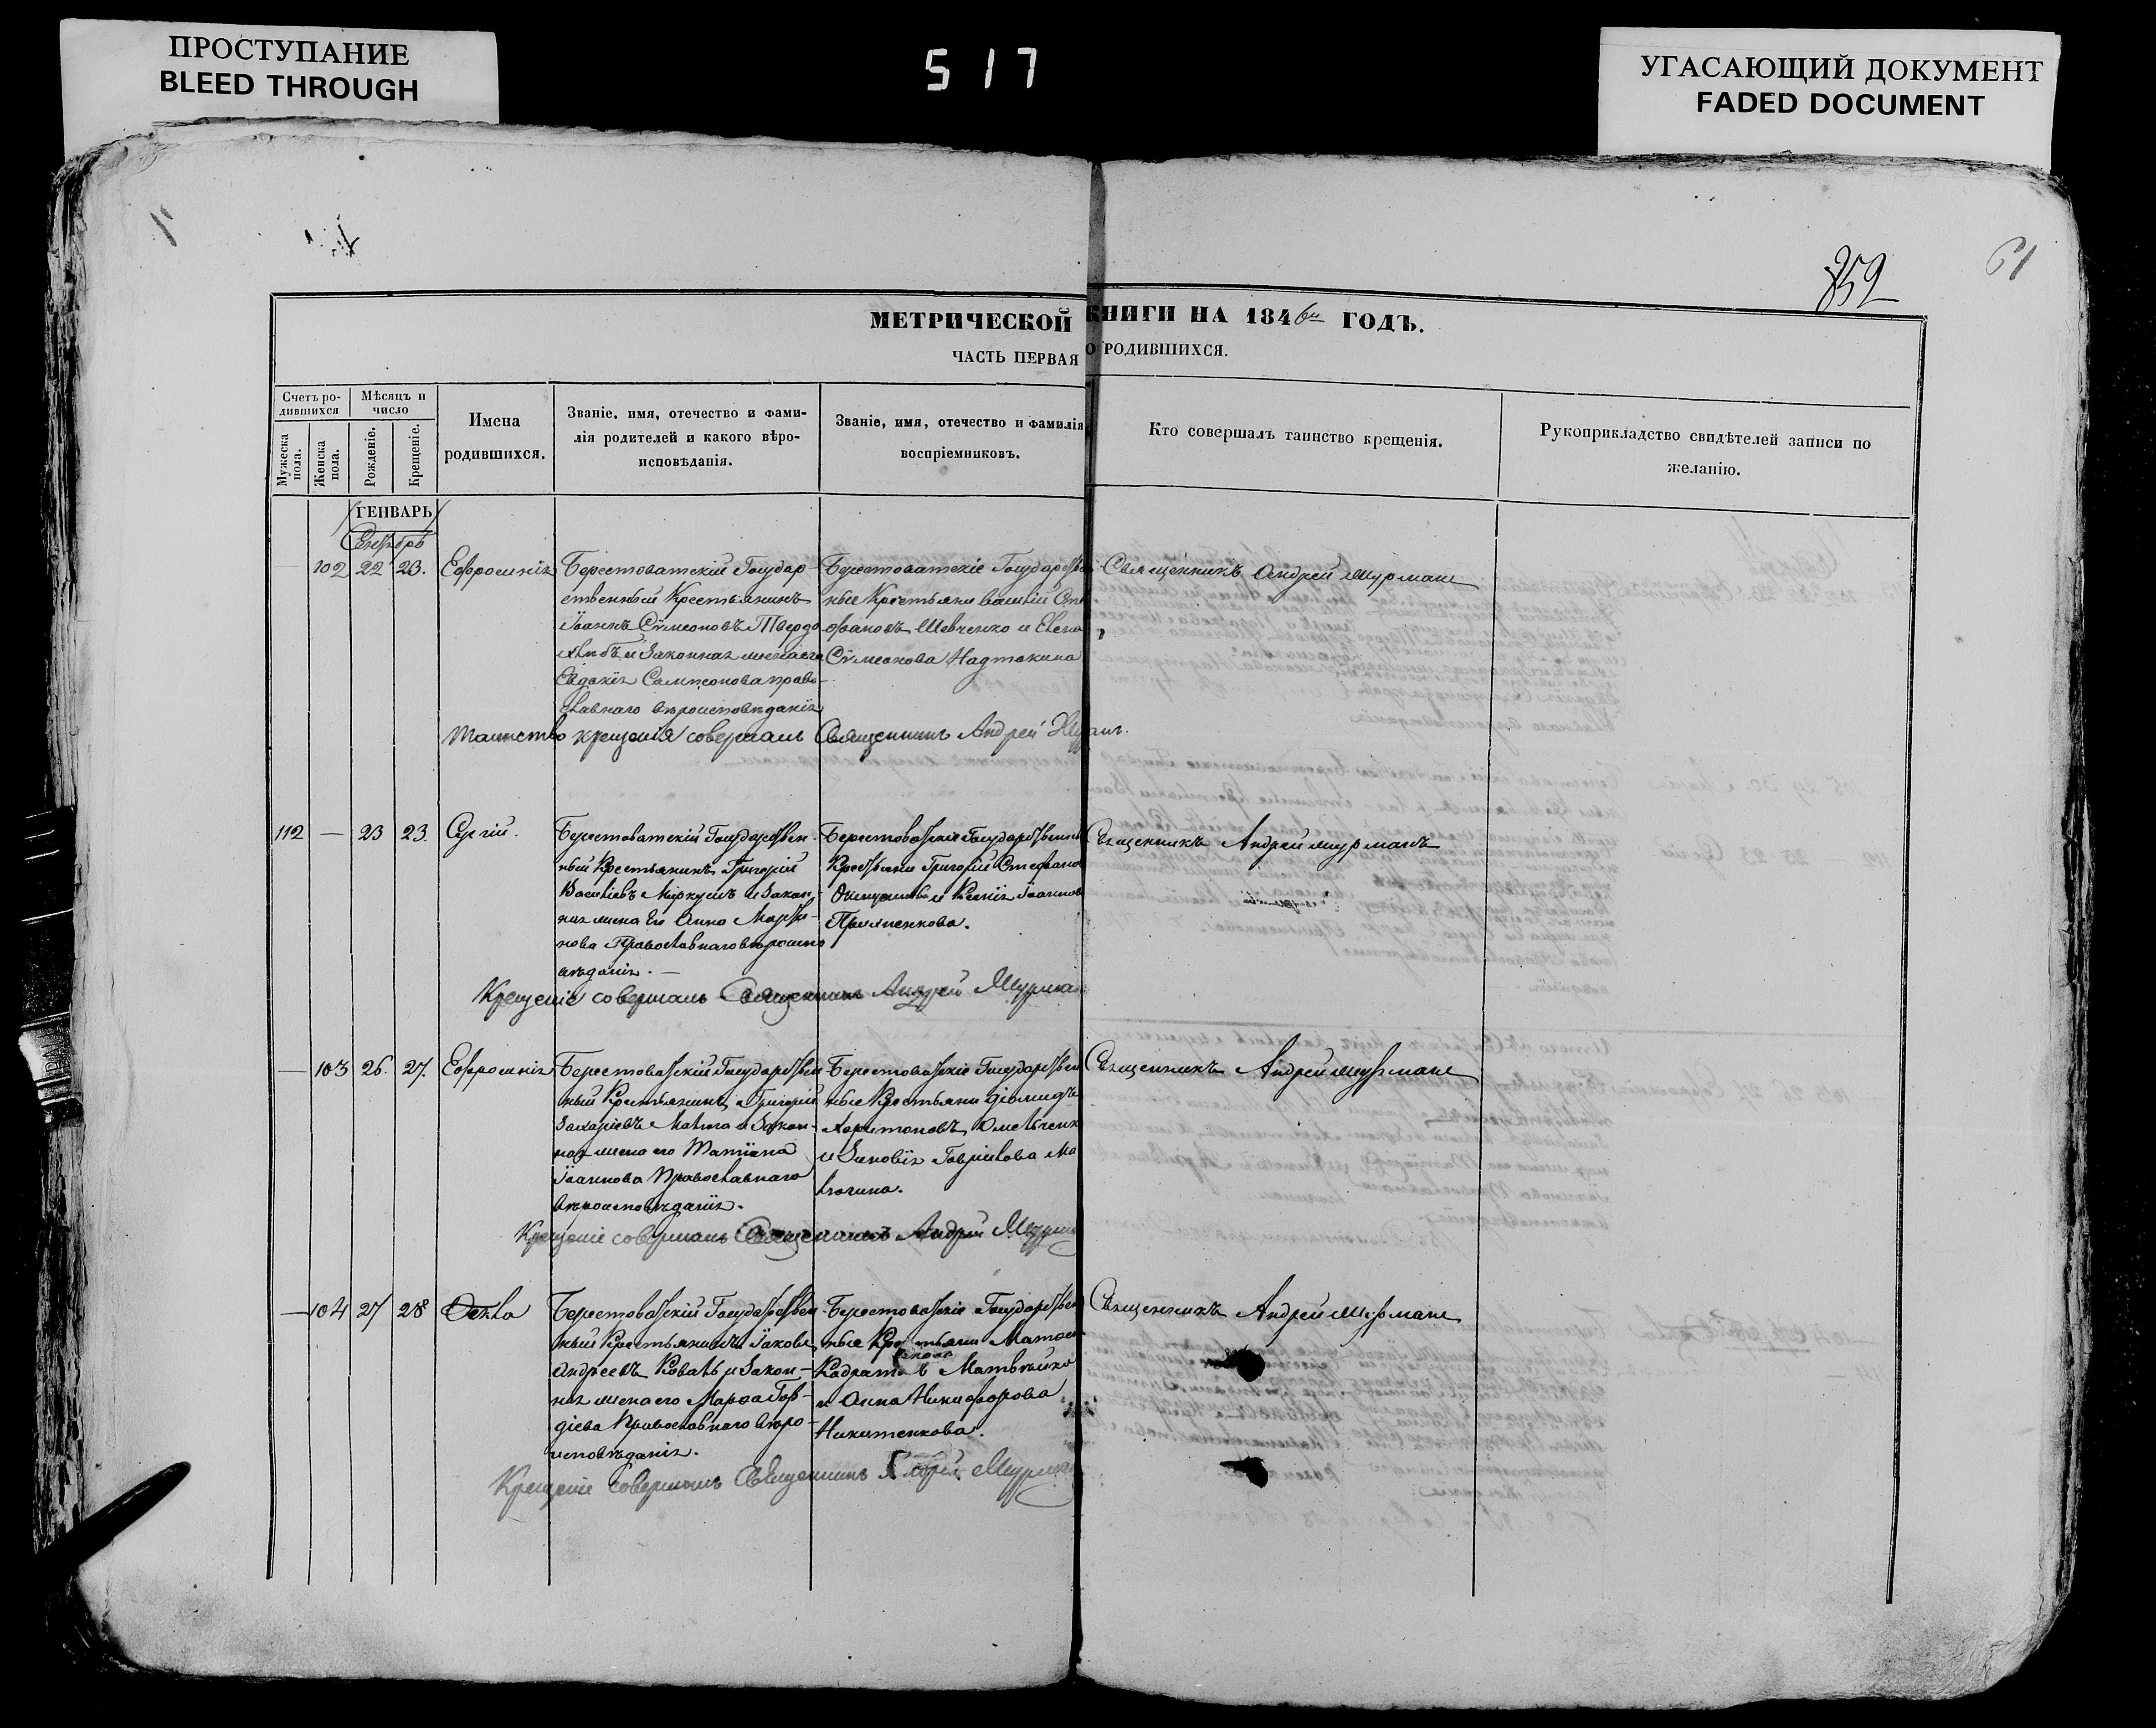 ПРОСТУПАНИЕ
BLEED THROUGH
517
УГАСАЮЩИЙ ДОКУМЕНТ
FADED DOCUMENT
352
61
МЕТРИЧЕСКОЙ КНИГИ НА 1846й ГОДЪ.
ЧАСТЬ ПЕРВАЯ О РОДИВШИХСЯ.
Счетъ ро-
дившихся
Мужеска пола.
Женска пола.
Мѣсяцъ и
число
Рожденіе.
Крещеніе.
Имена
родившихся.
Званіе, имя, отечество и фами-
лія родителей и какого вѣро-
исповѣданія.
Званіе, имя, отечество и фамилія
воспріемниковъ.
Кто совершалъ таинство крещенія.
Рукоприкладство свидѣтелей записи по
желанію.
ГЕНВАРЬ
102 22 23. Ефросинія
Берестоватскій Государ-
ственный Крестьянинъ
Іоаннъ Сѵмеоновъ Твердо
хлѣбъ и Законная жена его
Евдокія Сампсонова право-
славнаго вѣроисповѣданія
Берестоватскіе Государствен
ные Крестьяни Василій Сте
фановъ Шевченко и Елена
Сѵмеонова Надтокина
Священникъ Андрей Мурманъ
Таинство крещенія совершалъ Священникъ Андрей
112 — 23 23. Сергій.
Берестоватскій Государствен-
ный Крестьянинъ Григорій
Василіевъ и Закон-
ная жена Его Анна Марти-
нова Православнаго вѣроиспо
вѣданія. —
Берестоватскіе Государственны
Крестьяни Григорій Стефано
и Ксенія Іоаннов
Священникъ Андрей Мурманъ
Крещеніе совершалъ Священникъ Андрей Мурман
— 103 26. 27. Ефросинія
Берестоватскій Государствен
ный Крестьянинъ Григорій
Захаріевъ и Закон-
ная жена его Татіана
Іоаннова Православнаго
вѣроисповѣданія.
Берестоватскіе Государствен
ные Крестьяни Діомидъ
Харитоновъ Омельченк
и Зиновія Гавріилова Ма
Священникъ Андрей Мурманъ
Крещеніе совершалъ Священникъ Андрей Мурман
— 104 27 28 Ѳекла
Берестоватскій Государствен
ный Крестьянинъ Іаковъ
Андреевъ Коваль и Закон-
ная жена его Марѳа Гор-
діева Православнаго вѣро-
исповѣданія.
Берестоватскіе Государствен
ные Крестьяни
Матвѣйко
и Анна Никифорова
Никитенкова.
Священникъ Андрей Мурманъ
Крещеніе совершалъ Священникъ Андрей Мурман